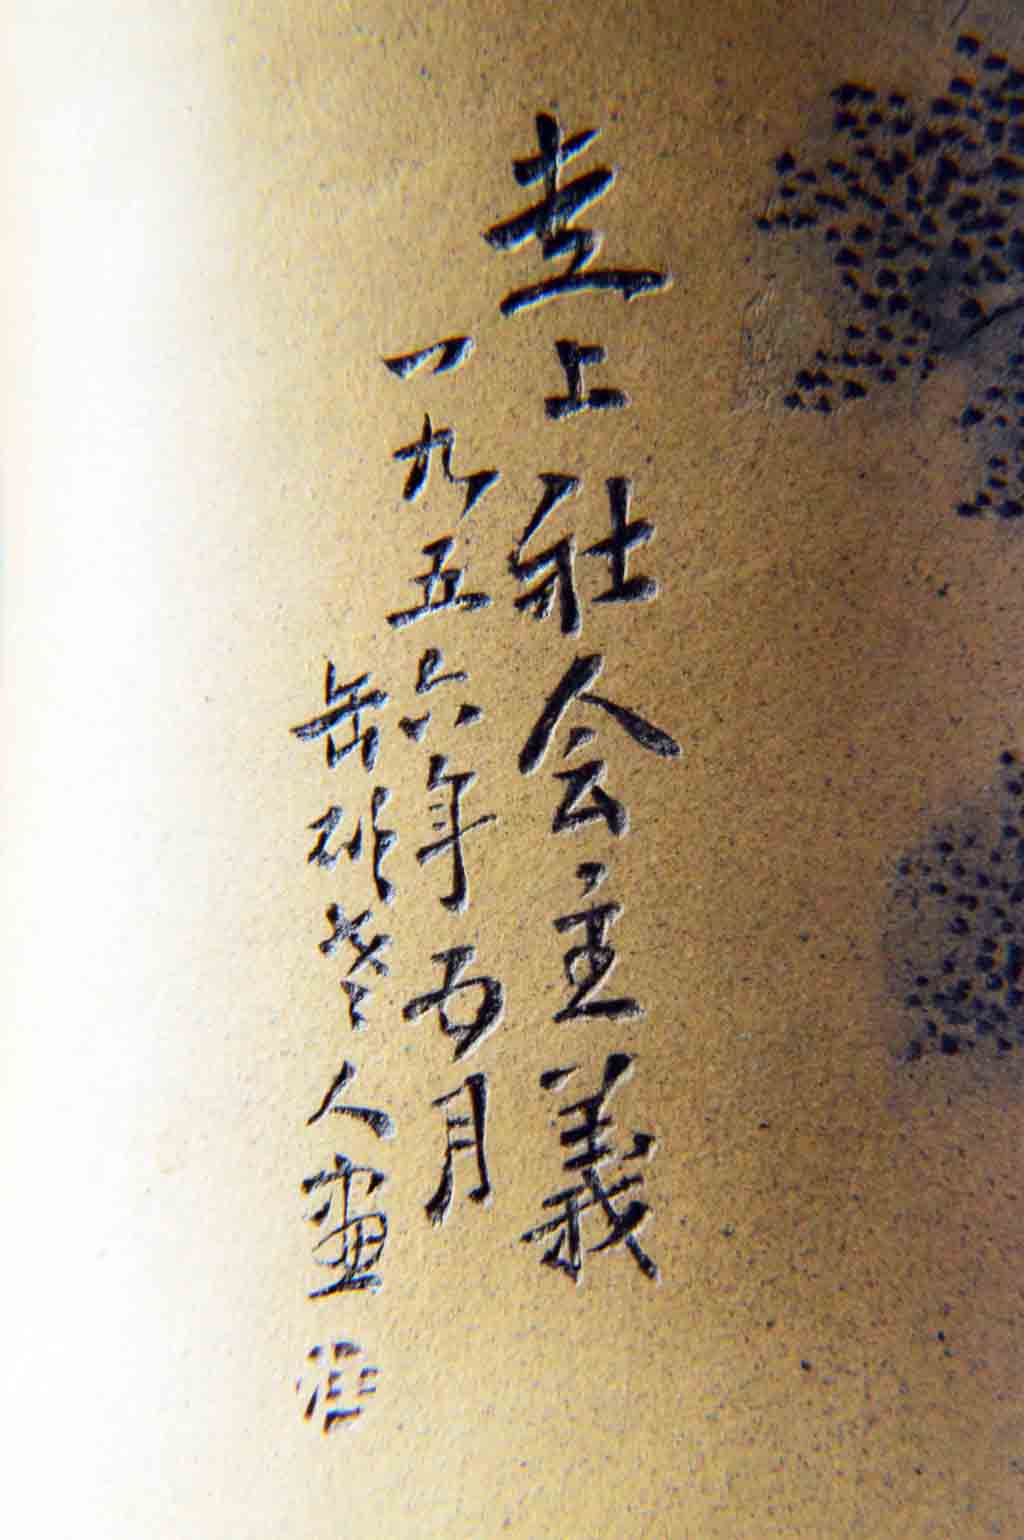 走上社会主義
一九五六年五月
缶老人畫